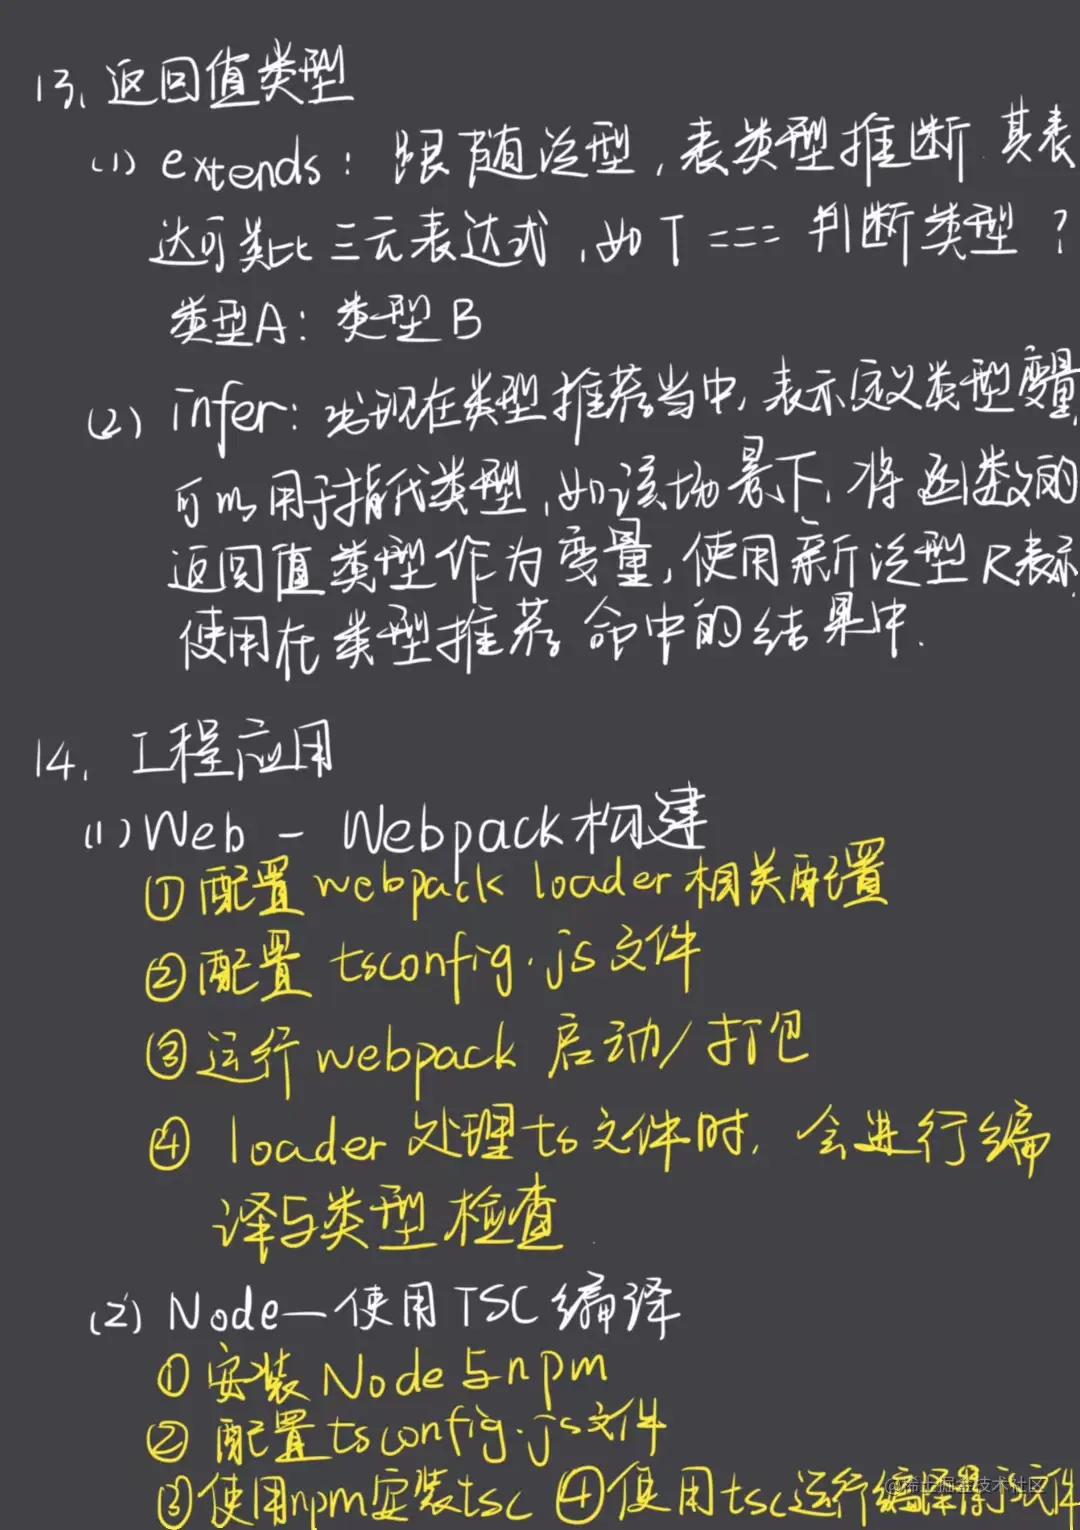 13. 返回值类型
(1) extends: 跟随泛型,表类型推断 其表
达可类比三元表达式,如T === 判断类型?
类型A: 类型B
(2) infer: 出现在类型推荐当中,表示定义类型变量,
可以用于指代类型,如该场景下,将函数的
返回值类型作为变量,使用新泛型R表示,
使用在类型推荐命中的结果中.
14. 工程应用
(1) Web - Webpack构建
①配置webpack loader相关配置
②配置 tsconfig.js文件
③运行webpack 启动/打包
④ loader处理ts文件时,会进行编
译与类型检查
(2) Node—使用TSC编译
①安装Node与npm
②配置tsconfig.js文件
③使用npm安装tsc ④使用tsc运行编译得到文件
@稀土掘金技术社区